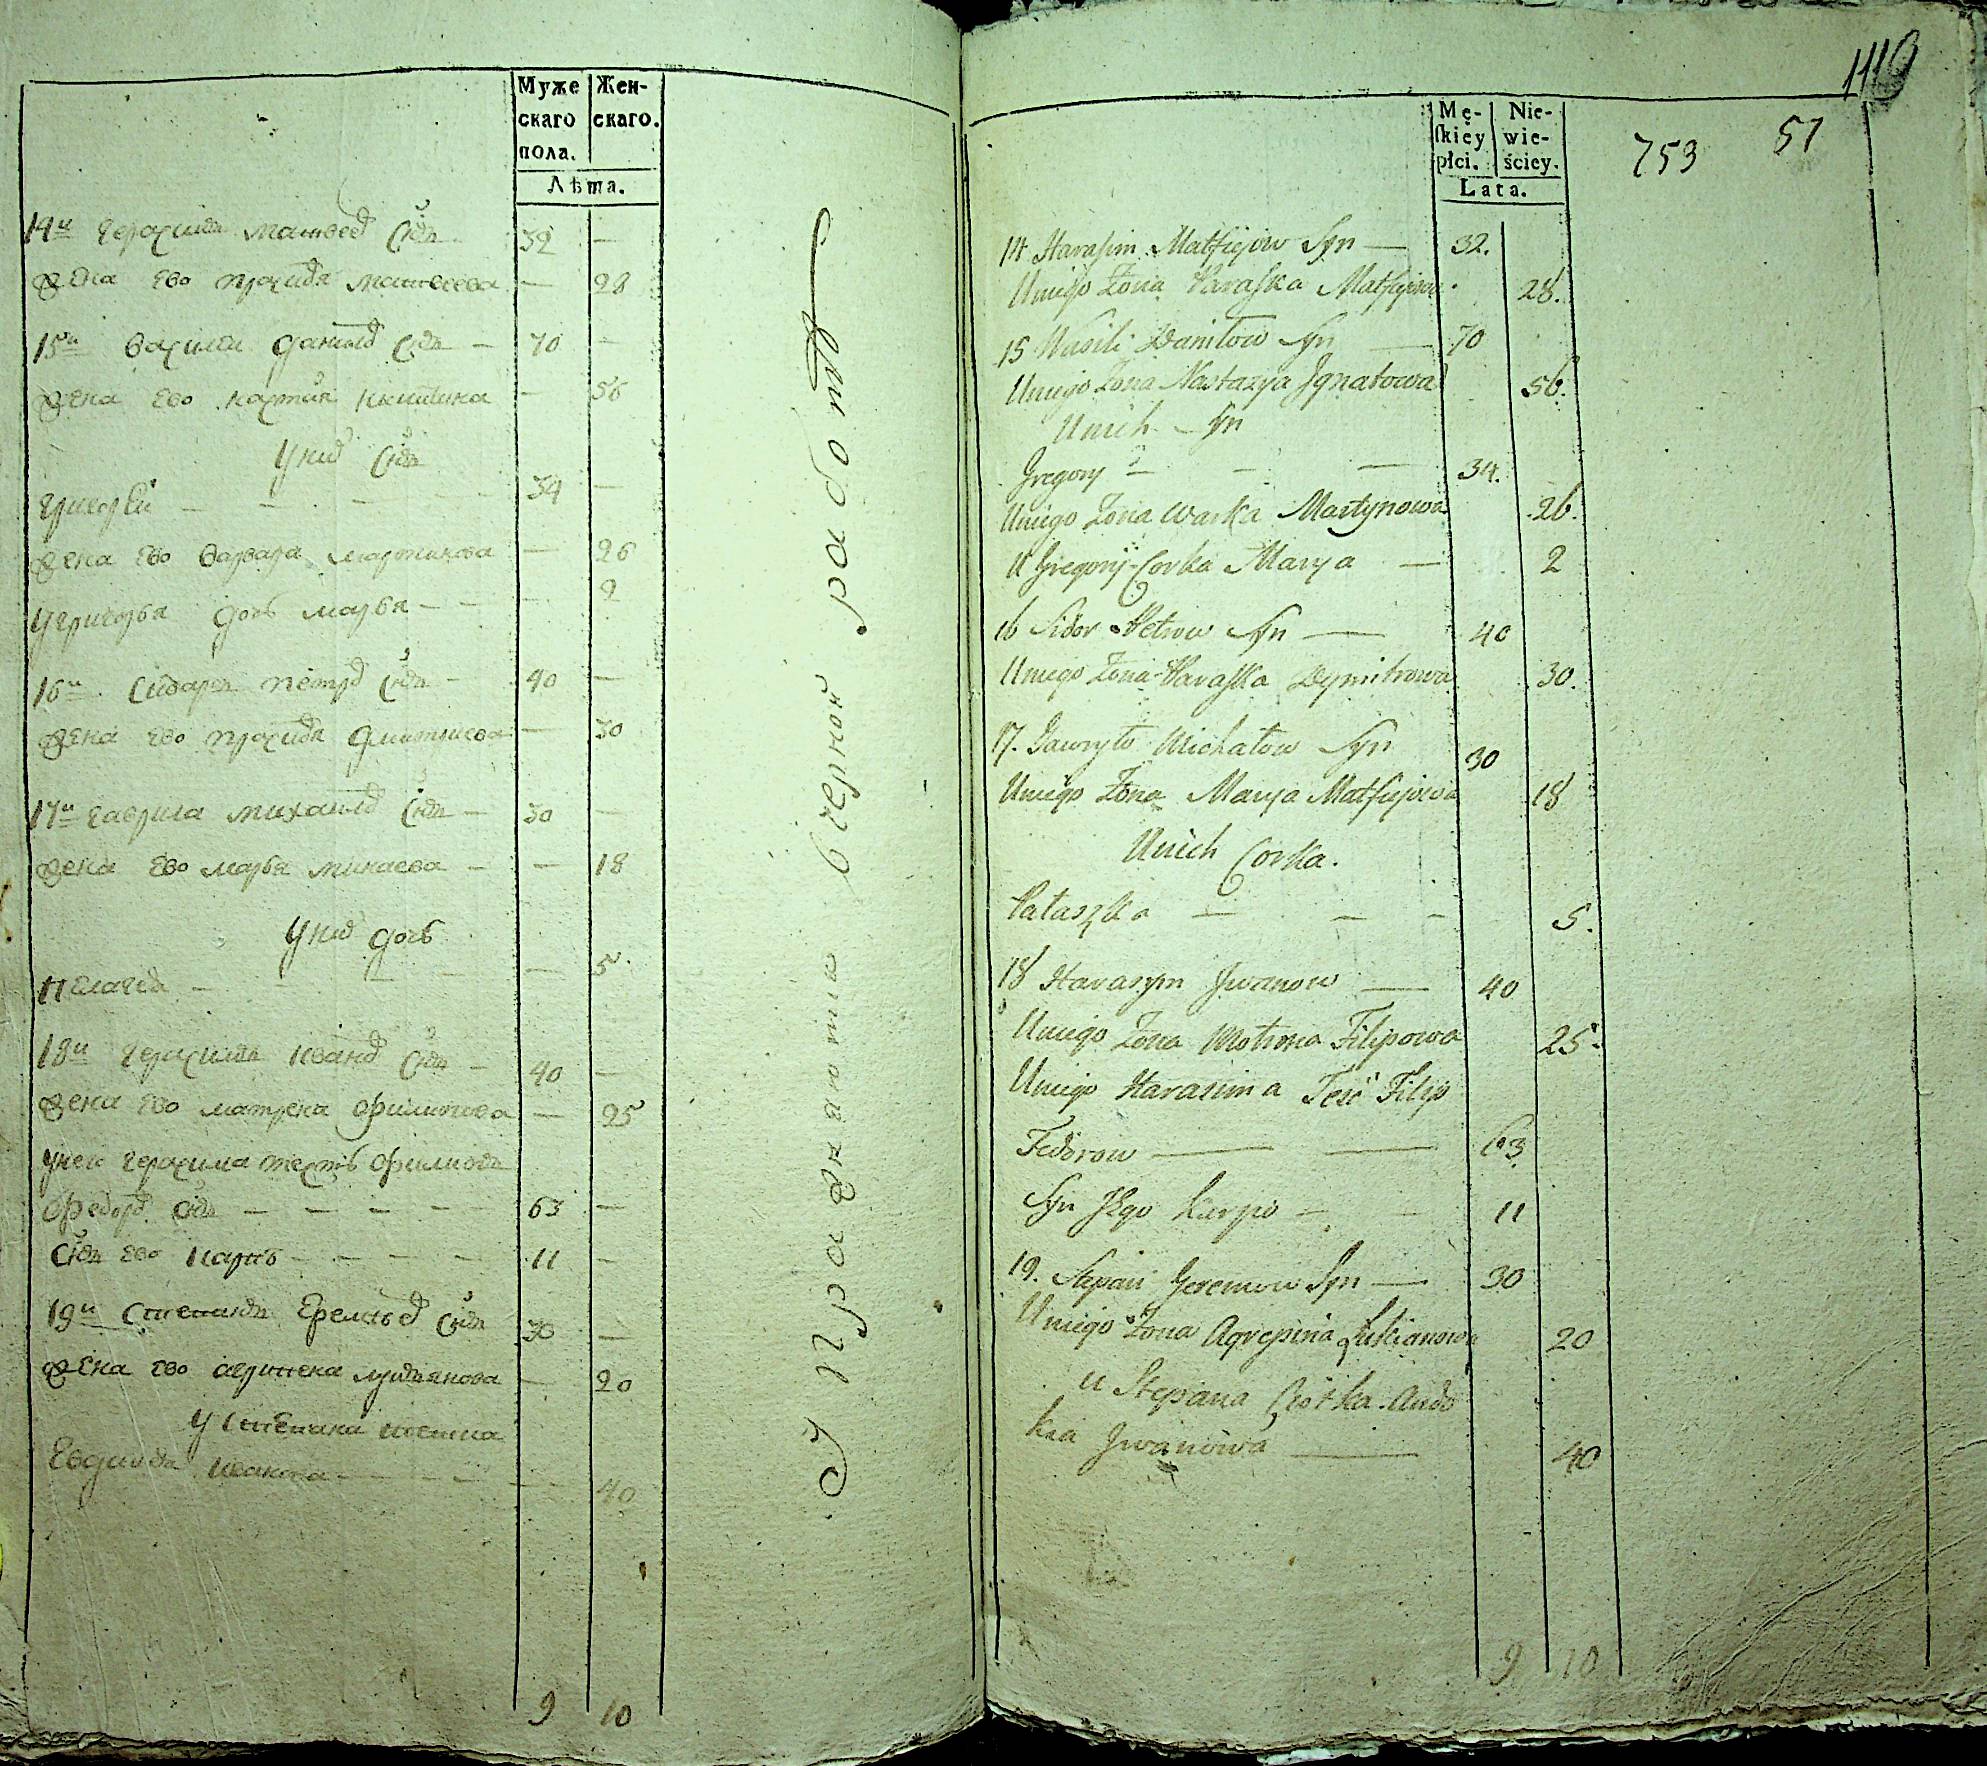 Муже
скаго
пола.
Жен-
скаго.
Лѣта.
14й Герасимъ Матвеевъ Сынъ 32 —
Жена Ево Прасковя Матвеева — 28
15й Василей Данилов Сынъ — 70 —
Жена Ево — 56
Уних Сынъ
Григорей — — — 34 —
Жена Ево Варвара Мартинова — 26
У Григорья дочь Марья — — — 2
16й Сидаръ Петров Сынъ — 40 —
Жена Ево Дмитриева — 30
17й Гаврила Михаилов Сынъ — 30 —
Жена Ево Марья — — 18
Уних дочь
Пелагея — — — — — 5
18й Герасимъ Иванов Сынъ — 40 —
Жена Ево Матрена Филипова — 25
Унего Герасима тесть Филипъ
Федоров Сынъ — — — — — 63 —
Сынъ Ево Карпъ — — — — 11 —
19й Степанъ Еремеев Сынъ 30 —
Жена Ево Агрипена Лукянова — 20
У Степана
Евдокия Иванова — — — — 40
9 10
Упражняютца в черной работѣ
1110
Mę-
skiey
płci.
Nie-
wie-
ściey.
Lata.
753 51
14 Harasim Matfiejow Syn — 32.
Uniego Zona Paraska Matfiejowa 28.
15 Wasili Daniłow Syn — 70
Uniego Zona Nastazya Jgnatowa 56.
Unich Syn
Gregory — — — 34.
Uniego Zona Warka Martynowa 26.
U Gregory Corka Marya — 2
16 Sidor Petrow Syn — 40
Uniego Zona Paraska Dymitrowa 30.
17. Gawryło Michałow Syn 30
Uniego Zona Marya Matfiejowa 18
Unich Corka.
Pałaszka — — — 5.
18 Harasym Jwanow — 40
Uniego Zona Motrona Filipowa 25.
Uniego Harasima Teść Filip
Fedorow — — 63
Syn Jego Karpo — — 11
19. Stepan Jeremow Syn — 30
Uniego Zona Agrepina Łukianowa 20
u Stepana Ciotka Awdo
kia Jwanowa — 40
9 10